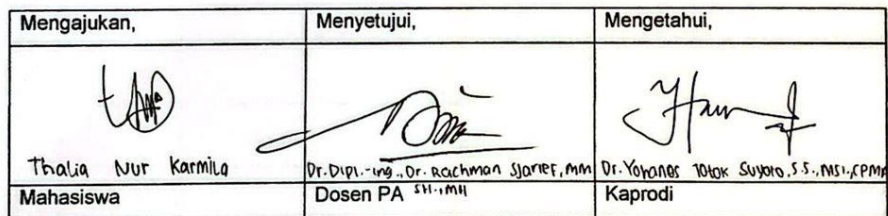 Mengajukan,
Menyetujui,
Mengetahui,
Thalia Nur Karmila
Dr. Dipl.-Ing., Dr. Rachman Sjarief, MM
SH., MH
Dr. Yohanes Totok Suyoto, S.S., MSi., CPMA
Mahasiswa
Dosen PA
Kaprodi